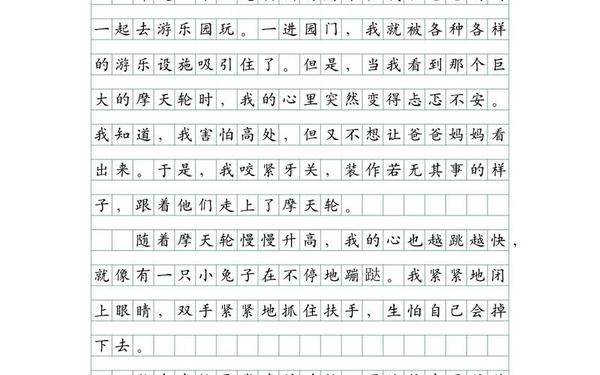 一起去游乐园玩。一进园门，我就被各种各样
的游乐设施吸引住了。但是，当我看到那个巨
大的摩天轮时，我的心里突然变得忐忑不安。
我知道，我害怕高处，但又不想让爸爸妈妈看
出来。于是，我咬紧牙关，装作若无其事的样
子，跟着他们走上了摩天轮。
随着摩天轮慢慢升高，我的心也越跳越快，
就像有一只小兔子在不停地蹦跶。我紧紧地闭
上眼睛，双手紧紧地抓住扶手，生怕自己会掉
下去。